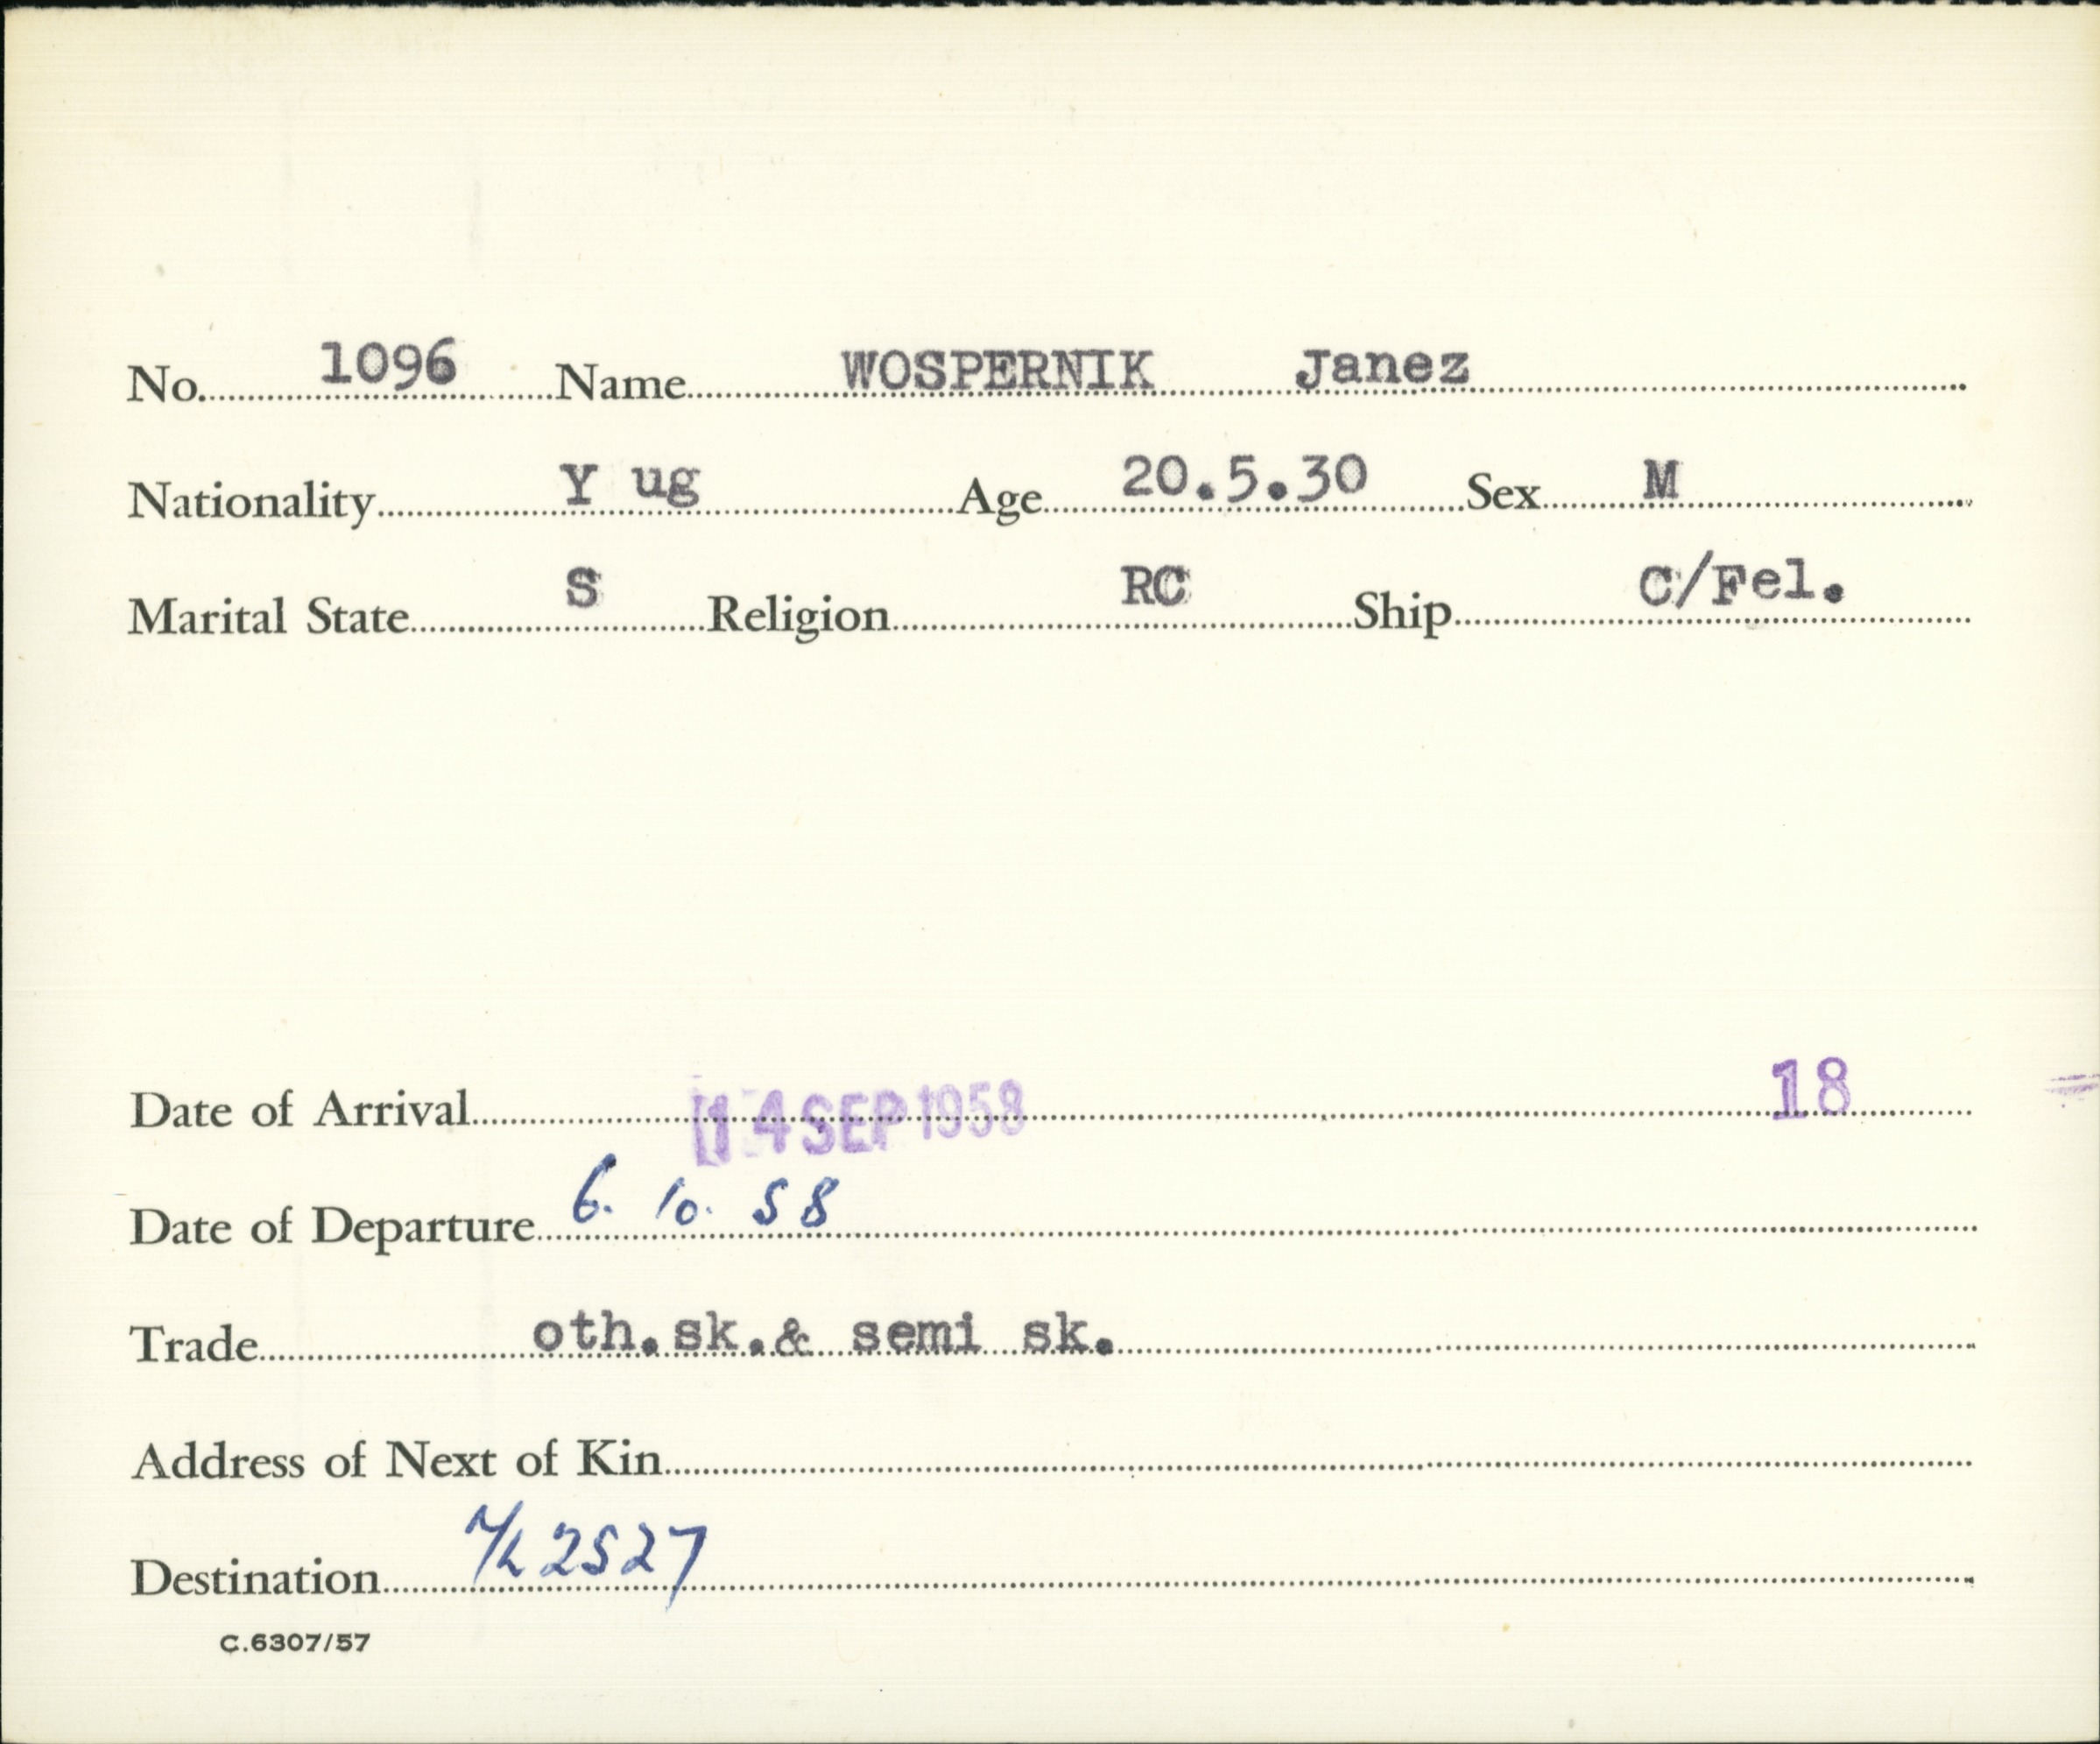 No. 1096 Name WOSPERNIK Janez
Nationality Y ug Age 20.5.30 Sex M
Marital State S Religion RC Ship C/Fel.
Date of Arrival 14 SEP 1958 18
Date of Departure 6. 10. 58
Trade oth.sk.& semi sk.
Address of Next of Kin
Destination 2527
C.6307/57